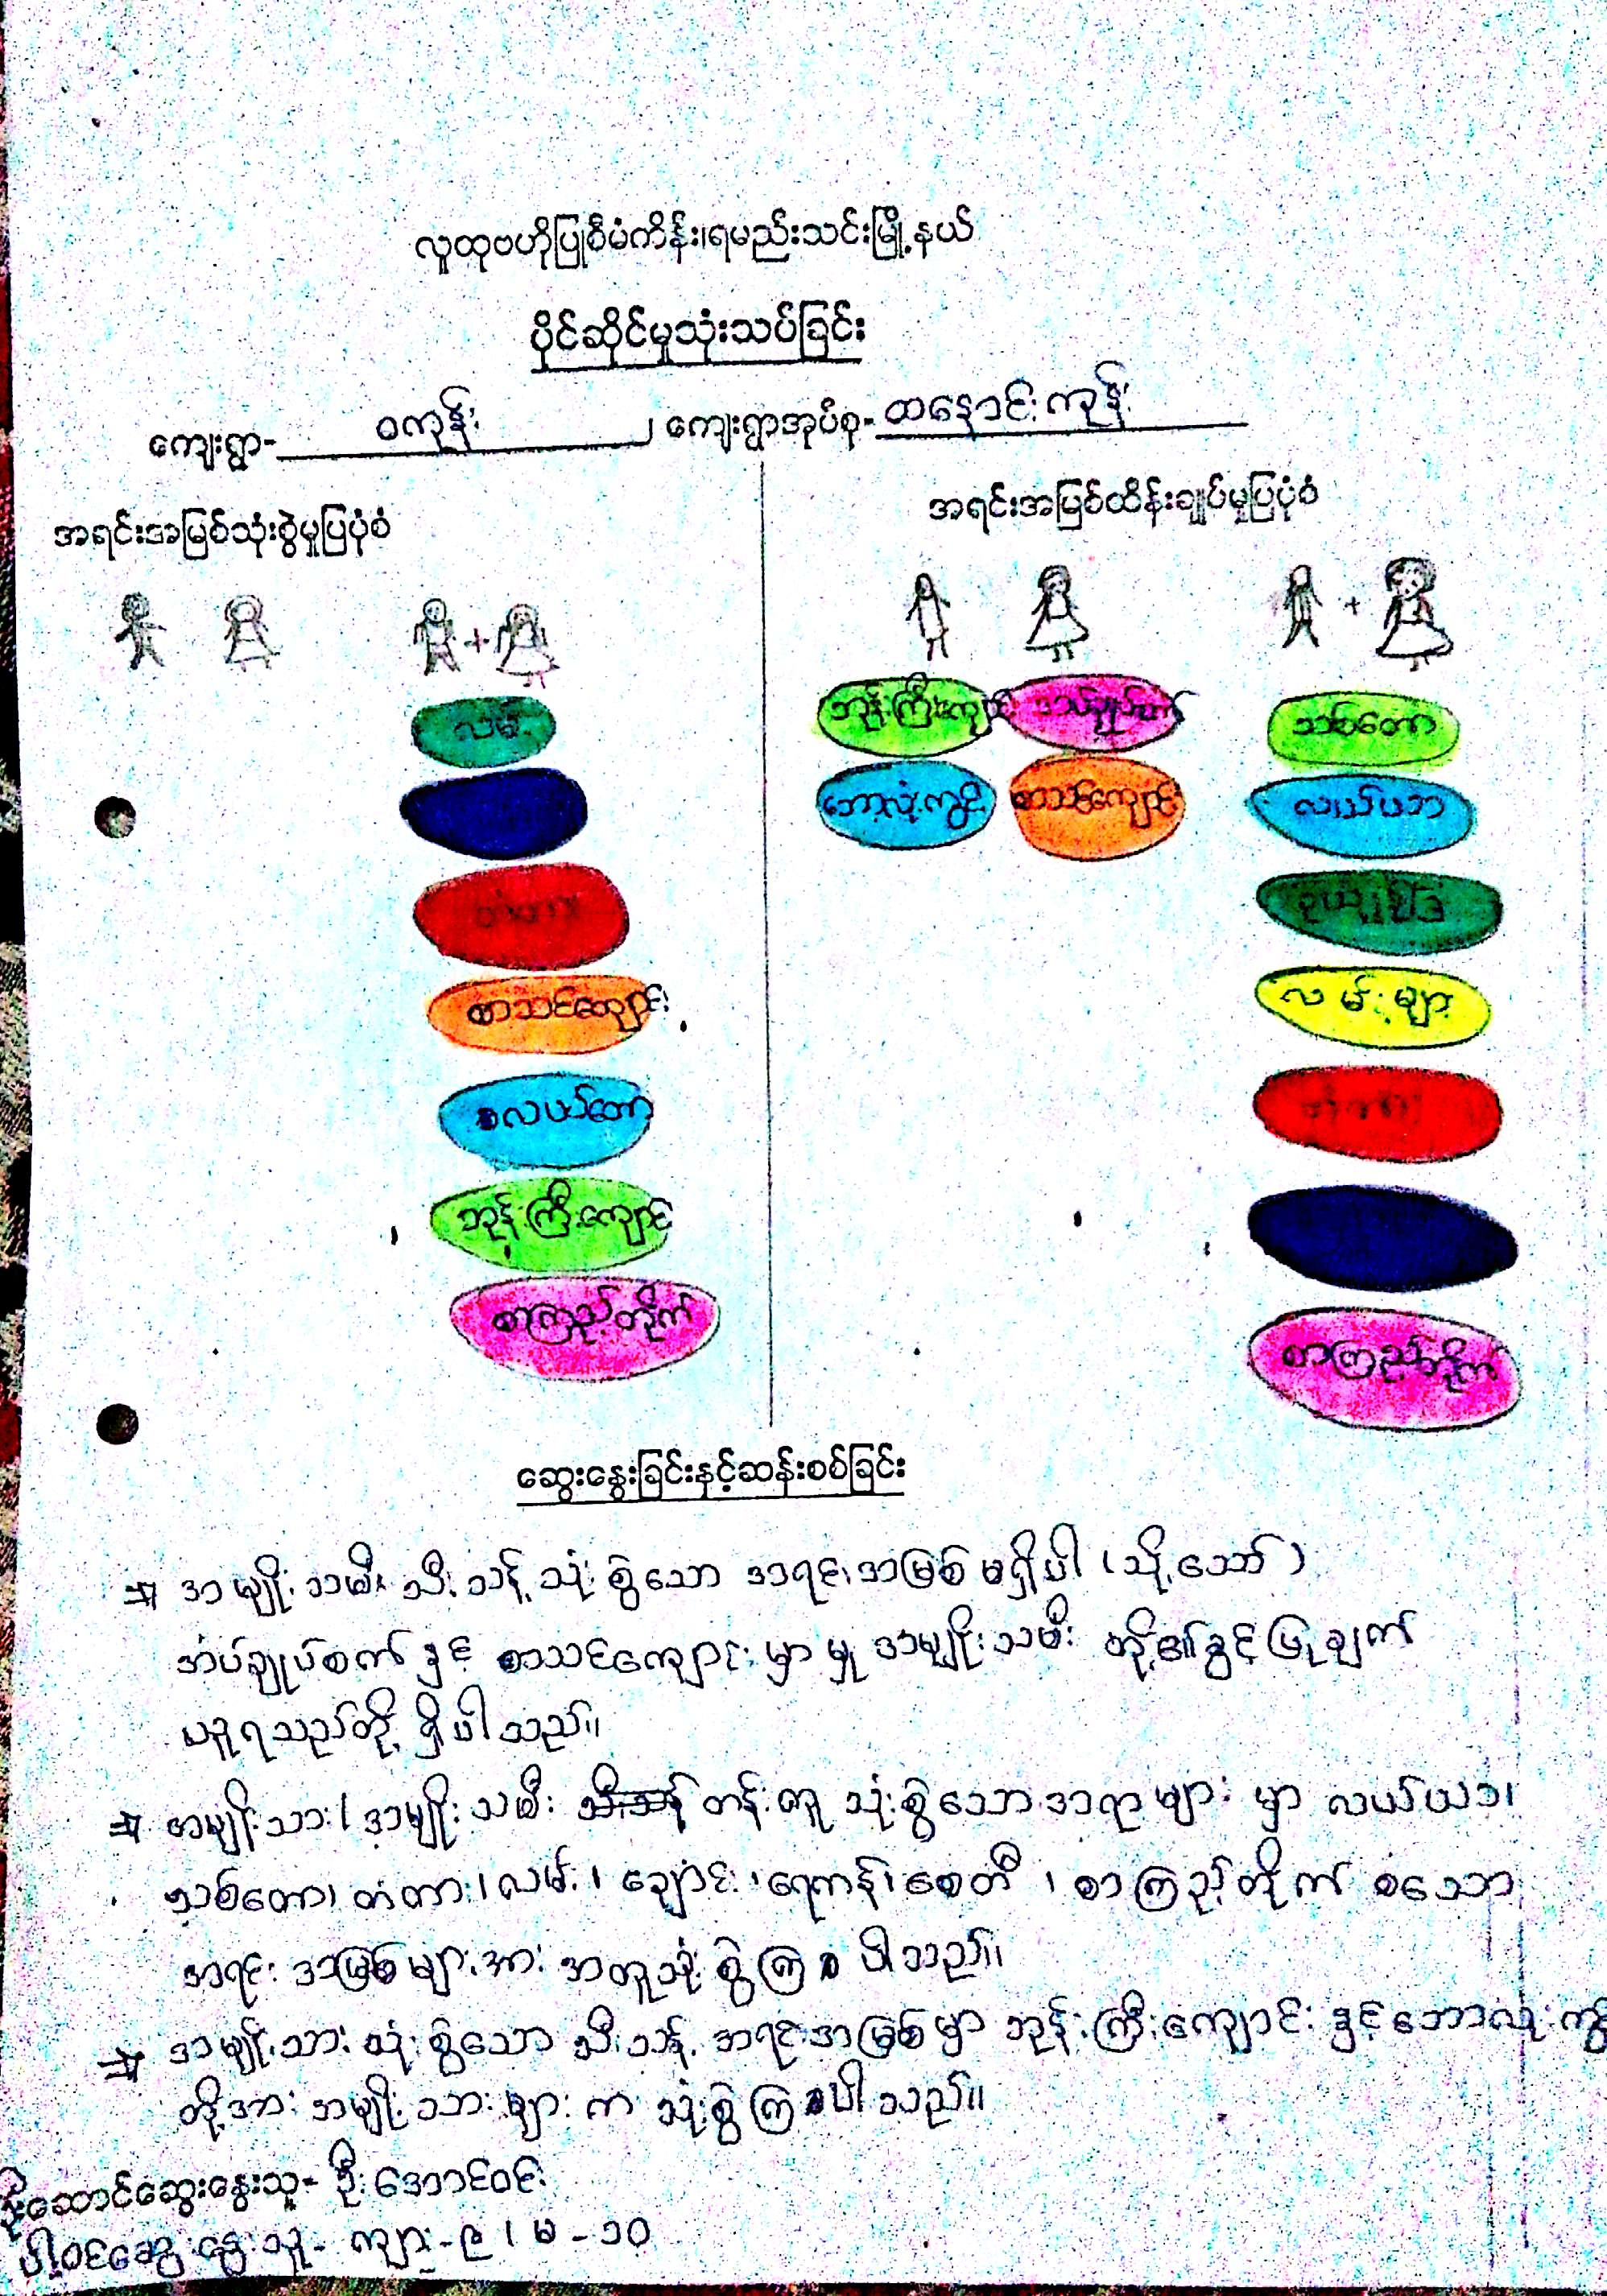 လူထုဗဟိုပြုစီမံကိန်း၊ရမည်းသင်းမြို့နယ်
ပိုင်ဆိုင်မှုသုံးသပ်ခြင်း
ကျေးရွာ- ဝကုန်း ၊ ကျေးရွာအုပ်စု- ထနောင်းကုန်း
အရင်းအမြစ်သုံးစွဲမှုပြပုံစံ
လမ်း
စာသင်ကျောင်း
ဘုန်းကြီးကျောင်း
စာကြည့်တိုက်
အရင်းအမြစ်ထိန်းချုပ်မှုပြပုံစံ
ဘုန်းကြီးကျောင်း
ဘောလုံးကွင်း
စာသင်ကျောင်း
သစ်တော
လယ်ယာ
လမ်းများ
စာကြည့်တိုက်
ဆွေးနွေးခြင်းနှင့်ဆန်းစစ်ခြင်း
⇒ အမျိုးသမီး သီးသန့် သုံးစွဲသော အရင်းအမြစ် မရှိပါ (သို့သော်)
အပ်ချုပ်စက် နှင့် စာသင်ကျောင်း မှာ မူ အမျိုးသမီး တို့၏ခွင့်ပြုချက်
ယူရသည်တို့ ရှိပါသည်။
⇒ အမျိုးသား/အမျိုးသမီး တန်းတူ သုံးစွဲသောအရာများ မှာ လယ်ယာ၊
သစ်တော၊ တံတား၊ လမ်း၊ ချောင်း၊ ရေကန်၊ စေတီ ၊ စာကြည့်တိုက် စသော
အရင်းအမြစ်များအား အတူသုံးစွဲကြပါသည်။
⇒ အမျိုးသား သုံးစွဲသော သီးသန့် အရင်းအမြစ်မှာ ဘုန်းကြီးကျောင်း နှင့်ဘောလုံး
တို့အား အမျိုးသားများ က သုံးစွဲကြပါသည်။
ဦးဆောင်ဆွေးနွေးသူ- ဦးအောင်ဝင်း
ပါဝင်ဆွေးနွေးသူ- ကျား-၉၊ မ-၁၀